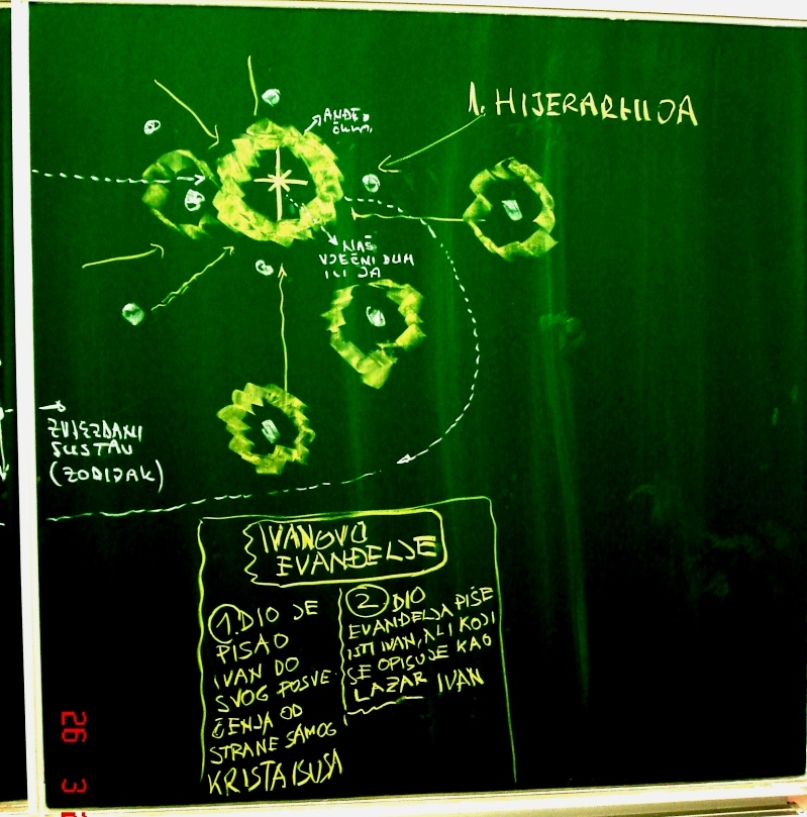 1. HIJERARHIJA
NAŠ
VJEČNI DUH
ILI JA
ZVIJEZDANI
SUSTAV
(ZODIJAK)
IVANOVO
EVANĐELJE
1. DIO JE
PISAO
IVAN DO
SVOG POSVE-
ĆENJA OD
STRANE SAMOG
KRISTA ISUSA
2 DIO
EVANĐELJA PIŠE
ISTI IVAN, ALI KOJI
SE OPISUJE KAO
LAZAR IVAN
26 3